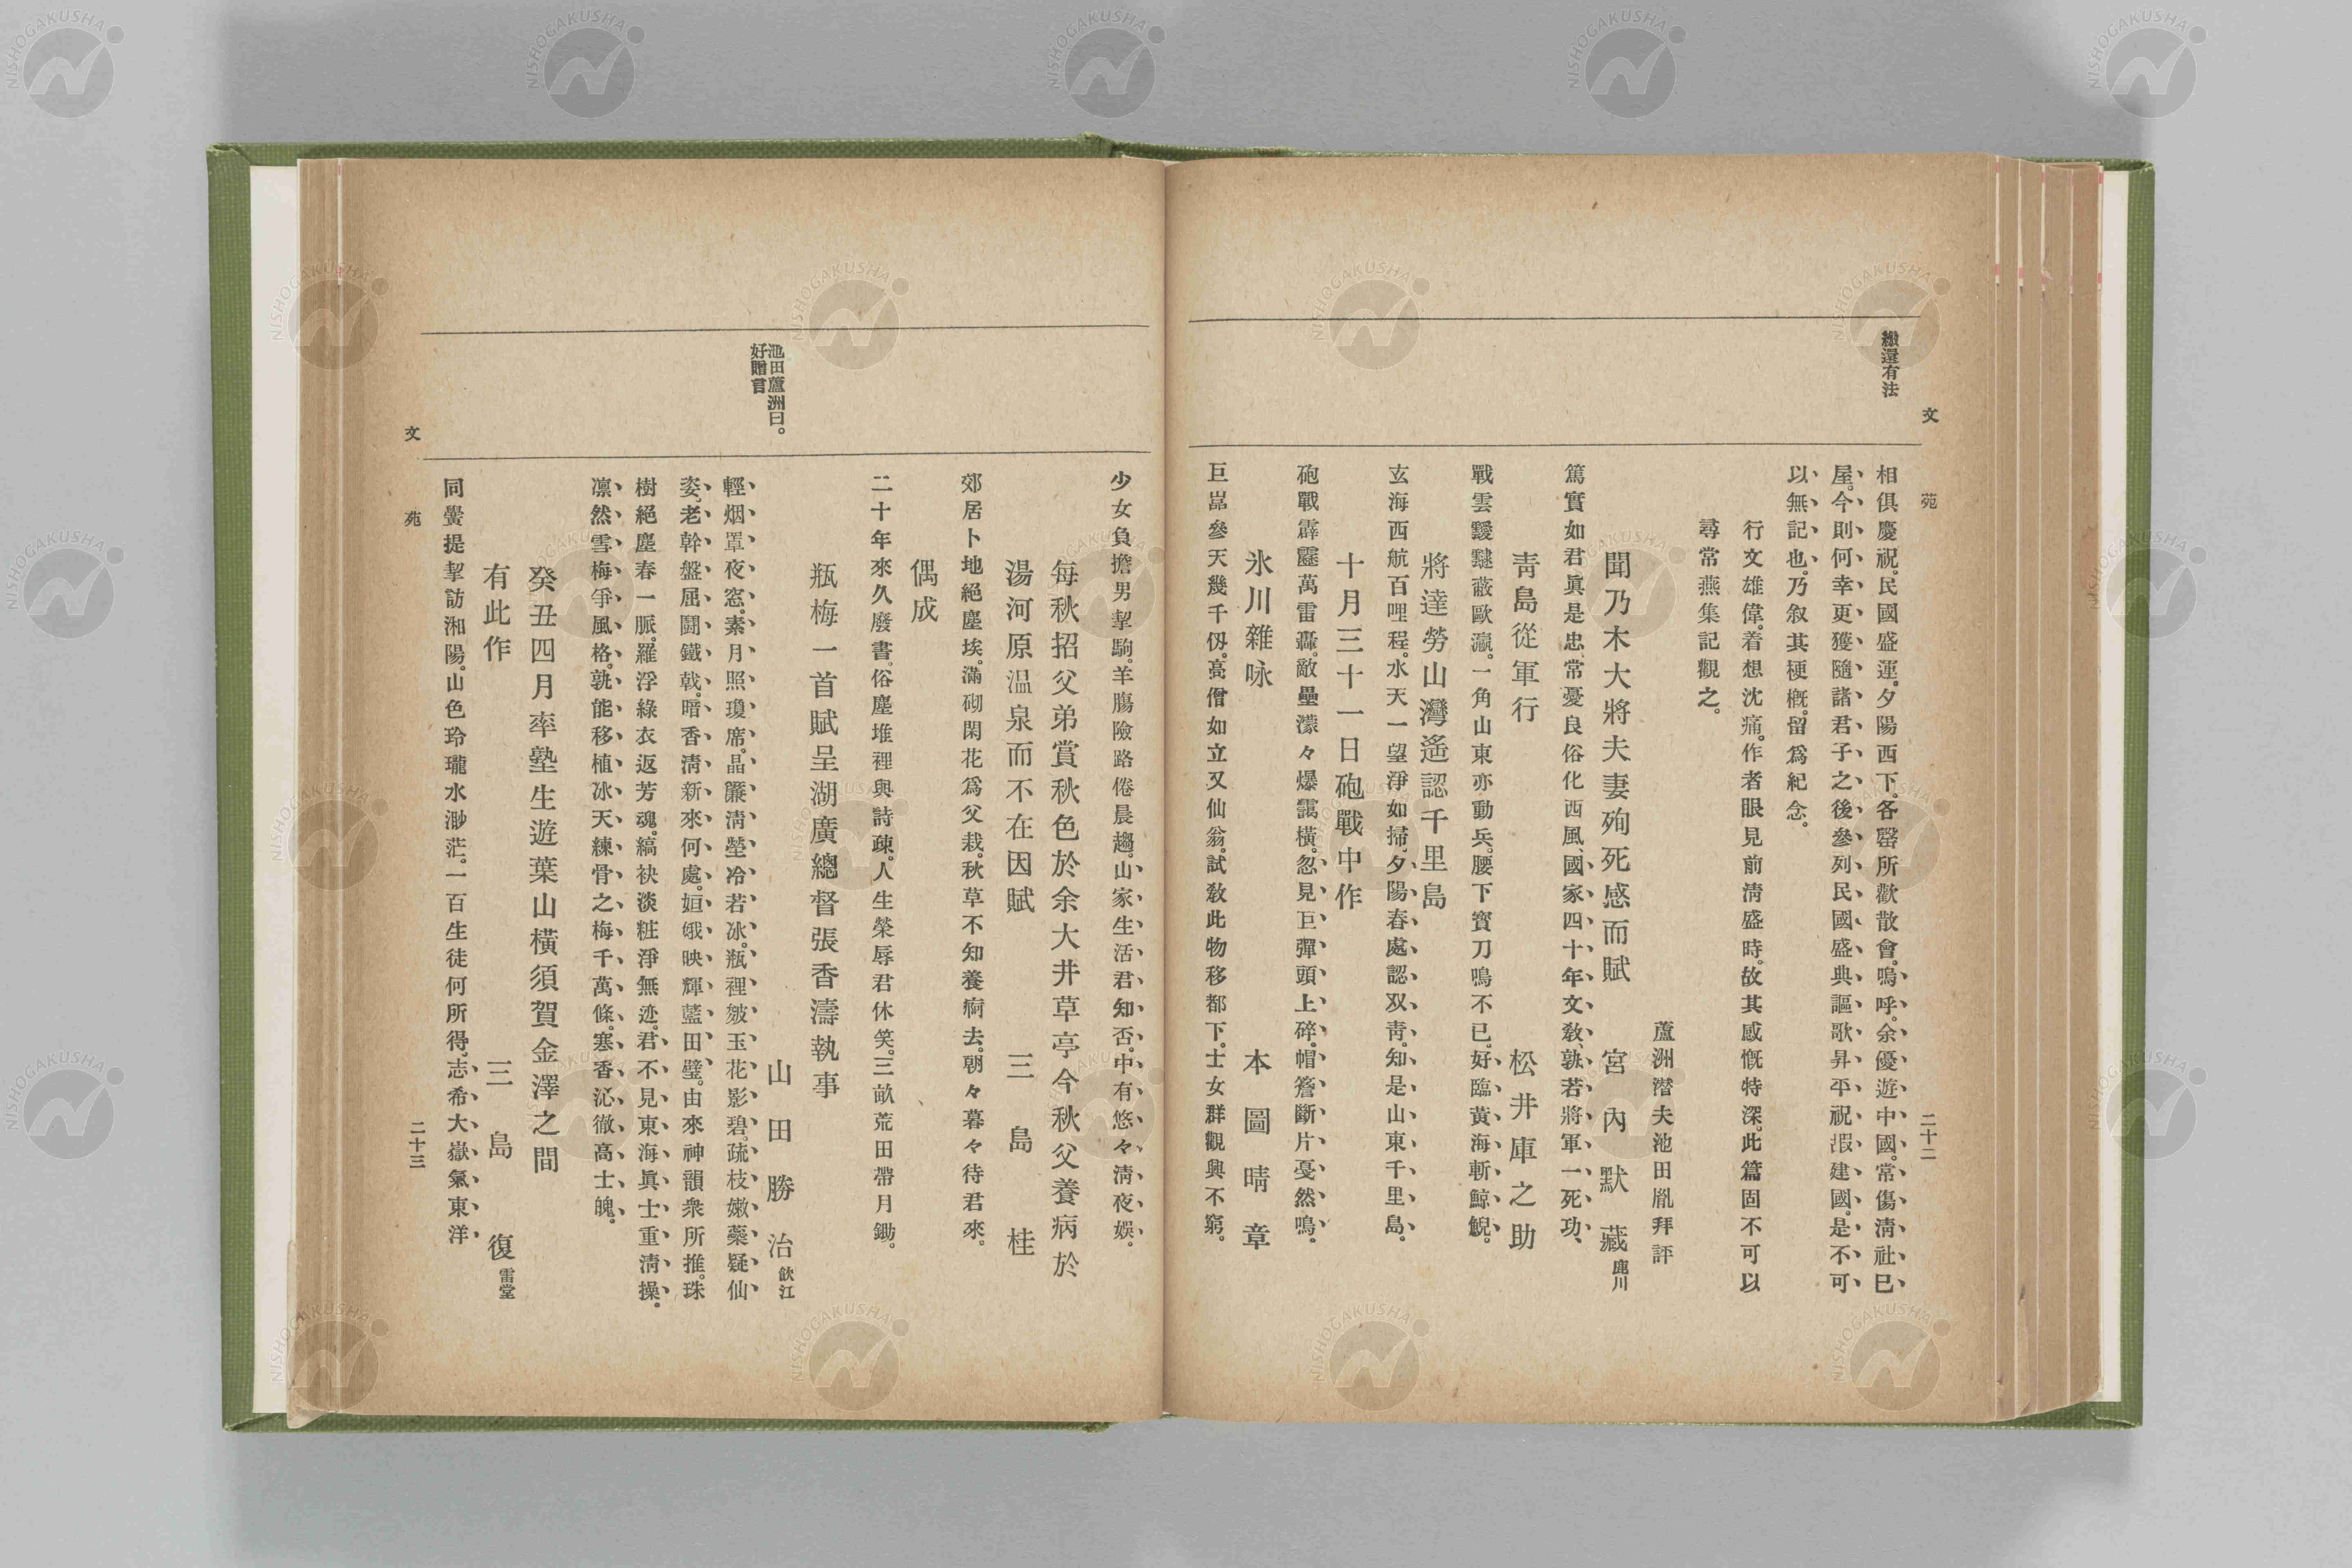 文苑
二十二
繳還有法
相俱慶祝。民國盛運。夕陽西下。各罄所歡散會。嗚呼。余優遊中國。常傷淸社已
屋。今則何幸更獲隨諸君子之後參列民國盛典謳歌昇平祝嘏建國。是不可
以無記也。乃叙其梗概。留爲紀念。
行文雄偉。着想沈痛。作者眼見前淸盛時。故其感慨特深。此篇固不可以
尋常燕集記觀之。
蘆洲潛夫池田胤拜評
聞乃木大將夫妻殉死感而賦 宮內默藏 鹿川
篤實如君眞是忠、常憂良俗化西風、國家四十年文敎、孰若將軍一死功、
靑島從軍行 松井庫之助
戰雲靉靆蔽歐瀛。一角山東亦動兵。腰下寳刀鳴不已。好臨黃海斬鯨鯢。
將達勞山灣遙認千里島
玄海西航百哩程。水天一望淨如掃。夕陽春處認双靑。知是山東千里島。
十月三十一日砲戰中作
砲戰霹靂萬雷轟。敵壘濛々爆靄橫。忽見巨彈頭上碎。帽簷斷片戞然鳴。
氷川雜咏 本圖晴章
巨嵓參天幾千仭。高僧如立又仙翁。試敎此物移都下。士女群觀興不窮。
少女負擔男挈駒。羊膓險路倦晨趨。山家生活君知否。中有悠々淸夜娛。
每秋招父弟賞秋色於余大井草亭今秋父養病於
湯河原温泉而不在因賦 三島桂
郊居卜地絕塵埃。滿砌閑花爲父栽。秋草不知養痾去。朝々暮々待君來。
偶成
二十年來久廢書。俗塵堆裡與詩疎。人生榮辱君休笑。三畝荒田帶月鋤。
瓶梅一首賦呈湖廣總督張香濤執事
山田勝治 飮江
池田蘆洲曰。
好贈言
輕烟罩夜窓。素月照瓊席。晶簾淸瑩冷若冰。瓶裡皴玉花影碧。疏枝嫩蘂疑仙
姿。老幹盤屈鬪鐵戟。暗香淸新來何處。姮娥映輝藍田璧。由來神韻衆所推。珠
樹絕塵春一脈。羅浮綠衣返芳魂。縞袂淡粧淨無迹。君不見東海眞士重淸操。
凛然雪梅爭風格。孰能移植冰天練骨之梅千萬條。寒香沁徹高士魄。
癸丑四月率塾生遊葉山橫須賀金澤之間
有此作 三島復 雷堂
同黌提挈訪湘陽。山色玲瓏水渺茫。一百生徒何所得。志希大嶽氣東洋
文苑
二十三